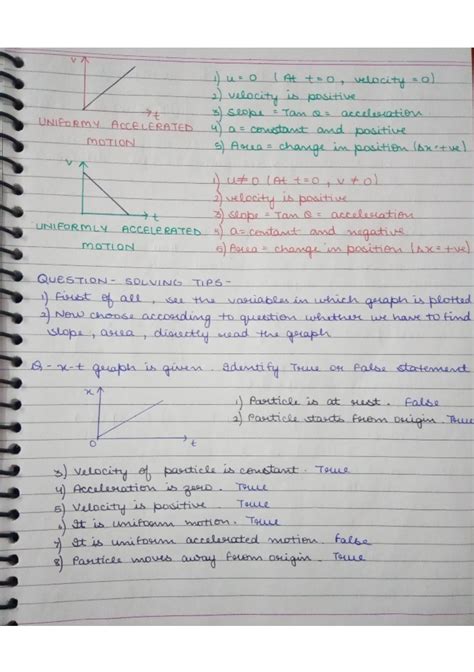 V
t
UNIFORMY ACCELERATED
MOTION
1) u = 0 (At t = 0, velocity = 0)
2) velocity is positive
3) slope = Tan Q = acceleration
4) a = constant and positive
5) Area = change in position (Δx = +ve)
V
t
UNIFORMLY ACCELERATED
MOTION
1) u ≠ 0 (At t = 0, v ≠ 0)
2) velocity is positive
3) slope = Tan Q = acceleration
5) a = contant and negative
6) Area = change in position (Δx = +ve)
QUESTION - SOLVING TIPS -
1) First of all, see the variables in which graph is plotted
2) Now choose according to question whether we have to find
slope, area, directly read the graph
Q - x-t graph is given. Identify True or False statement
x
O
t
1) Particle is at rest. False
2) Particle starts from origin. True
3) Velocity of particle is constant. True
4) Acceleration is zero. True
5) Velocity is positive. True
6) It is uniform motion. True
7) It is uniform accelerated motion. False
8) Particle moves away from origin. True